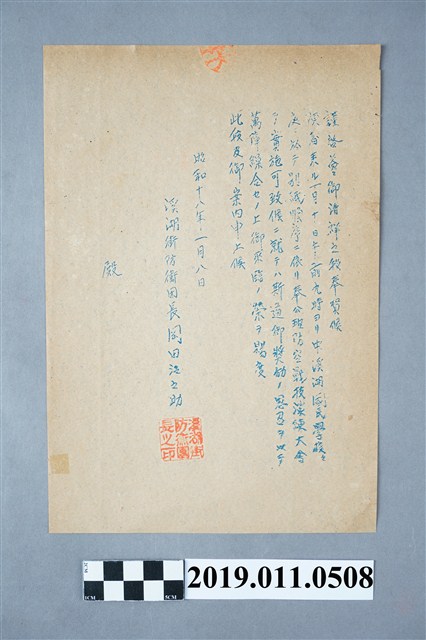 謹啓 愈御清祥之段奉賀候
陳者來ル一月十日午前九時ヨリ中溪湖國民學校ニ
於テ別紙順序ニ依リ奉公班防空競技演練大會
ヲ實施可致候ニ就テハ斯道御獎勵ノ思召ヲ以テ
萬障繰合セノ上御來臨ノ榮ヲ賜度
此段及御案内申上候
昭和十八年一月八日
溪湖街防衛團長 岡田治之助
殿
溪湖街
防衛團
長之印
2019.011.0508
1CM
5CM